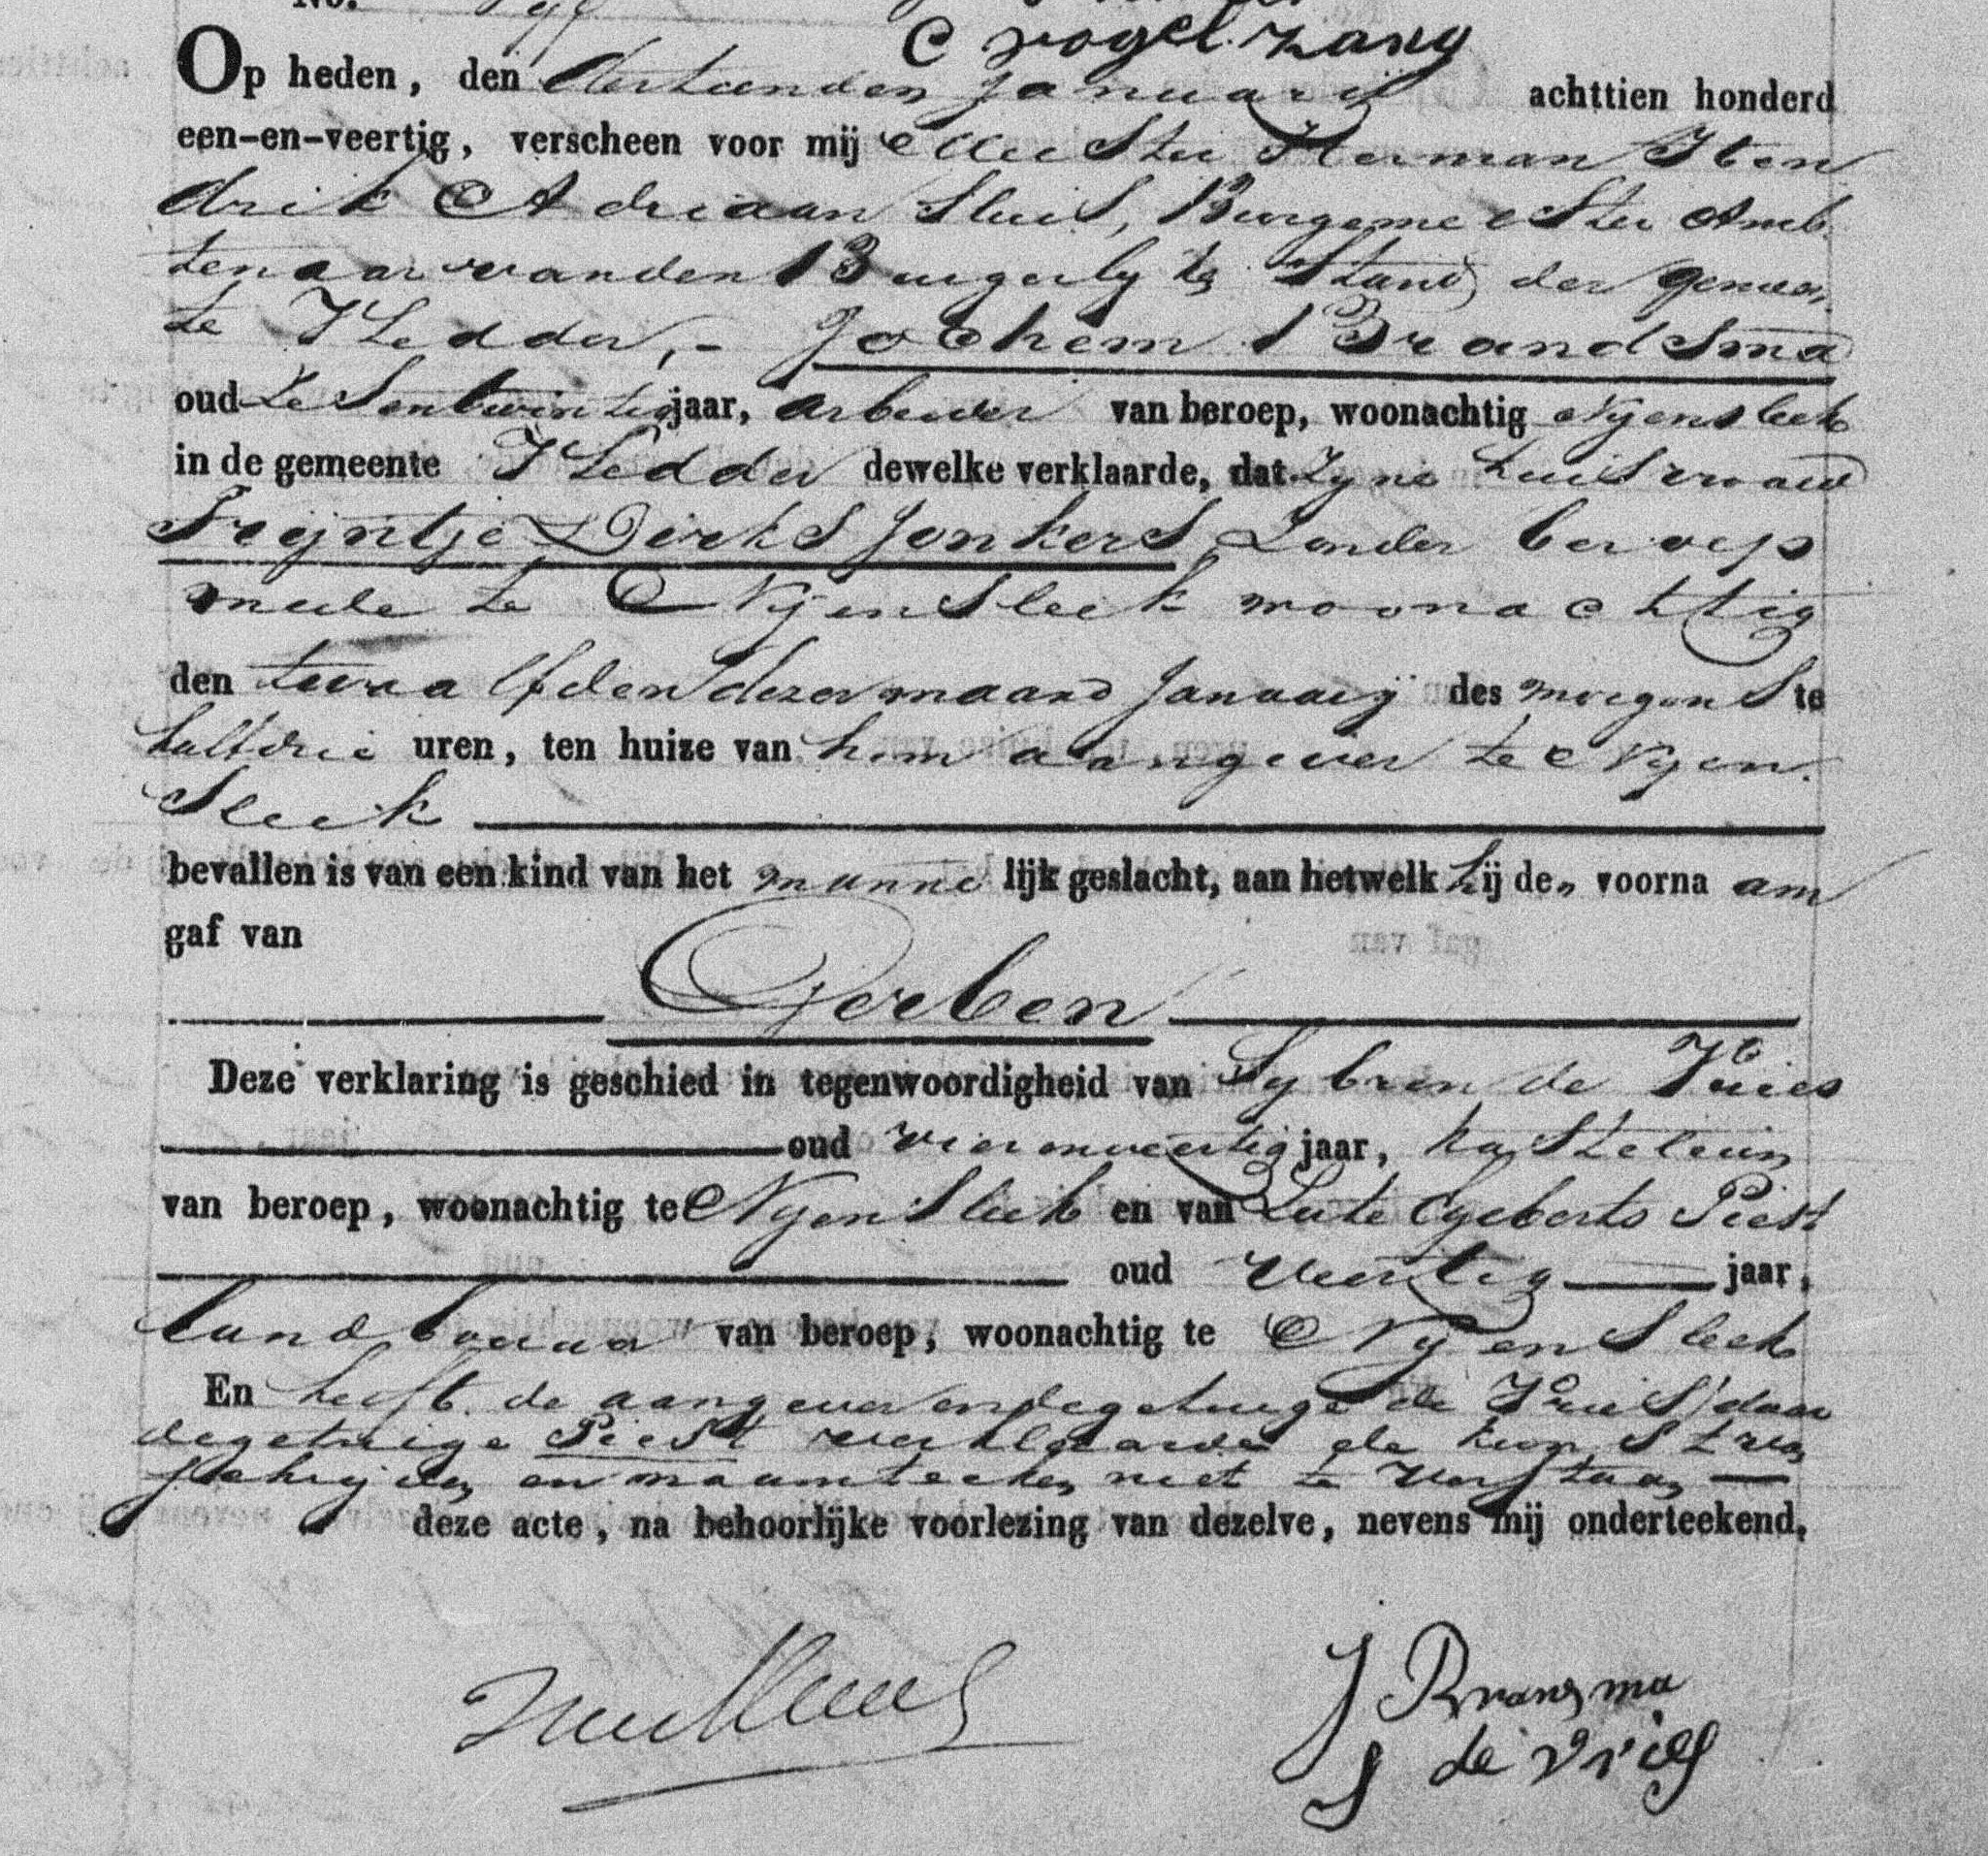 No. Vyf
C vogelzang
Op heden, den dertienden Januarij achttien honderd
een-en-veertig, verscheen voor mij Meester Herman Hen
drik Adriaan Sluis, Burgemeester Amb
tenaar van den Burgerlyke Stand der gemeen
te Vledder, - Jochem Brandsma
oud zesentwintig jaar, arbeider van beroep, woonachtig Nyensleek
in de gemeente Vledder dewelke verklaarde, dat zyne huisvrouw
Feijntje Dirks Jonkers, zonder beroep
mede te Nyensleek woonachtig
den twaalfden dezer maand Januarij des morgens te
half drie uren, ten huize van hem aangever te Nyen
sleek
bevallen is van een kind van het manne lijk geslacht, aan hetwelk hij den voorna am
gaf van
Gerben
Deze verklaring is geschied in tegenwoordigheid van Sybren de Vries
oud vierenveertig jaar, kastelein
van beroep, woonachtig te Nyensleek en van Lute Egberts Piest
oud veertig jaar,
landbouwer van beroep, woonachtig te Nyensleek
En heeft de aangever en de getuige de Vries, daar
de getuige Piest verklaarde de kunst van
schryven en naamteeken niet te verstaan
deze acte, na behoorlijke voorlezing van dezelve, nevens mij onderteekend.
J Bransma
S de Vries